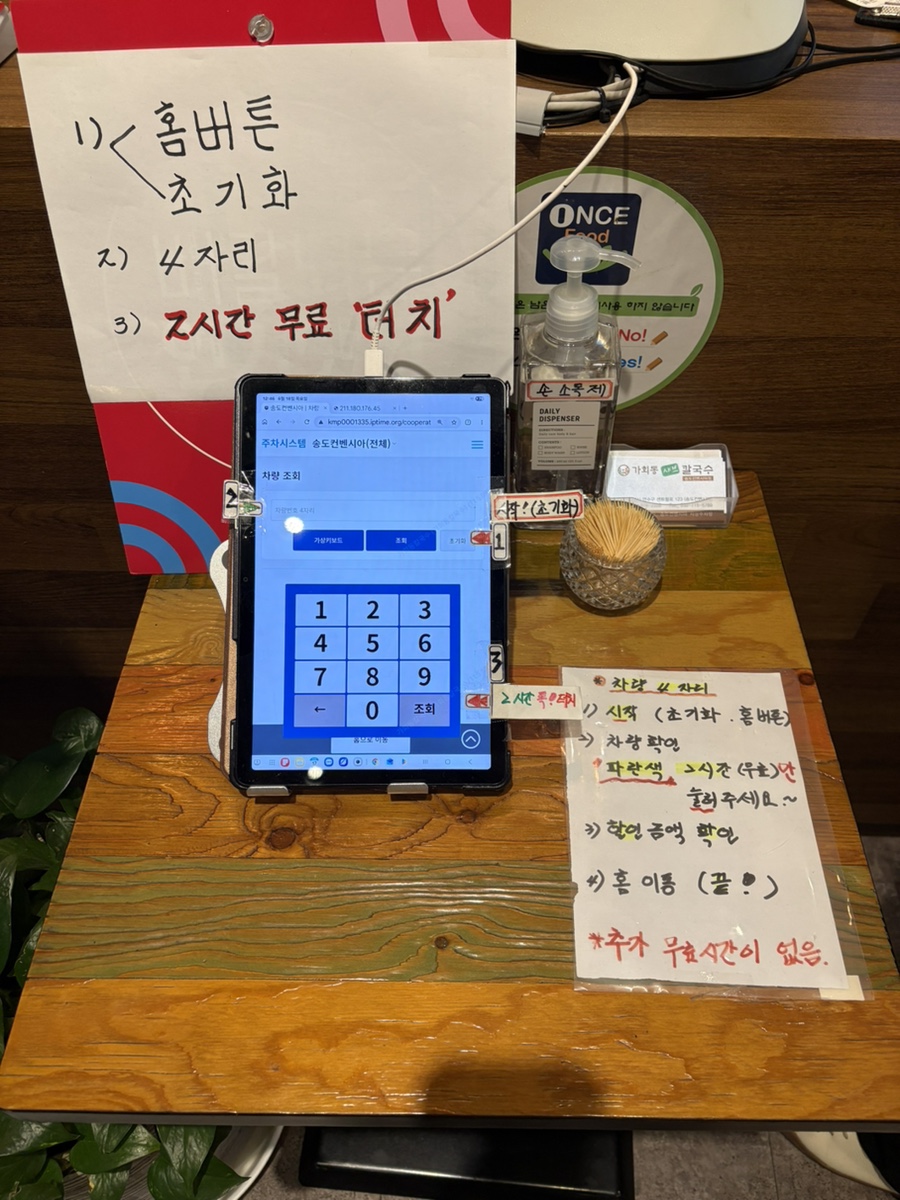 1) 홈버튼
초기화
2) 4자리
3) 2시간 무료 '터치'
ONCE
Food
사용 하지 않습니다
No!
손 소독제
DAILY
DISPENSER
가회동 칼국수
송도컨벤시아 | 차량
211.180.176.45
kmp0001335.iptime.org/cooperat
주차시스템 송도컨벤시아(전체)
차량 조회
2
차량번호 4자리
시작!(초기화)
가상키보드 조회 초기화
1
1 2 3
4 5 6
7 8 9
← 0 조회
3
2시간 콕!터치
홈으로 이동
차량 4자리
1) 시작 (초기화. 홈버튼)
2) 차량확인
파란색 2시간 (무료)만
눌러주세요~
3) 할인금액 확인
4) 홈 이동 (끝!)
*추가 무료시간이 없음.